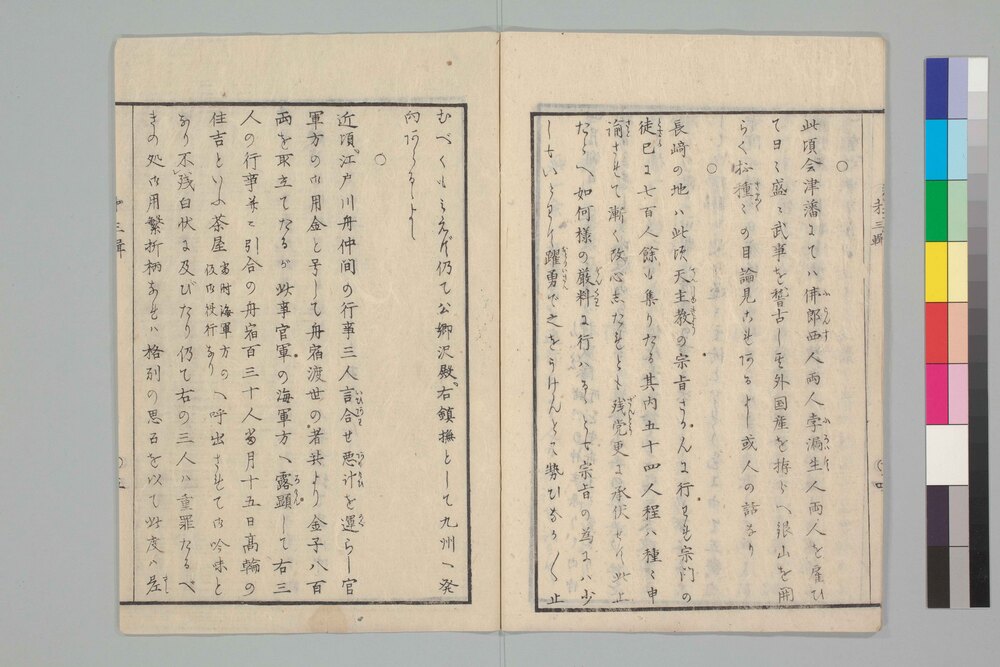 ○
此頃会津藩にてハ佛郎西人両人孛漏生人両人を雇ひ
て日々盛に武事を稽古し其外国産を拵らへ銀山を開
らく抔種々の目論見これあるよし或人の話なり
○
長崎の地ハ此頃天主教の宗旨さかんに行われ宗門の
徒已に七百人餘も集りたる其内五十四人程ハ種々申
諭されて漸く改心したれども残党更に承伏せず此上
たとへ如何様の厳科に行ハるゝとも宗旨の為にハ少
しもいとわず躍勇で之をうけんと云勢ひなかく止
むべくもミえず仍て公卿沢殿右鎮撫として九州へ発
向あるよし
○
近頃江戸川舟仲間の行事三人言合せ悪計を運らし官
軍方の御用金と号して舟宿渡世の者共より金子八百
両を取立てたるが此事官軍の海軍方へ露顕して右三
人の行事并に引合の舟宿百三十人当月十五日高輪の
住吉といふ茶屋当時海軍方の仮御役所なりへ呼出されて御吟味と
なり不残白状に及びたり仍て右の三人ハ重罪たるべ
きの処御用繁折柄なれハ格別の思召を以て此度ハ差